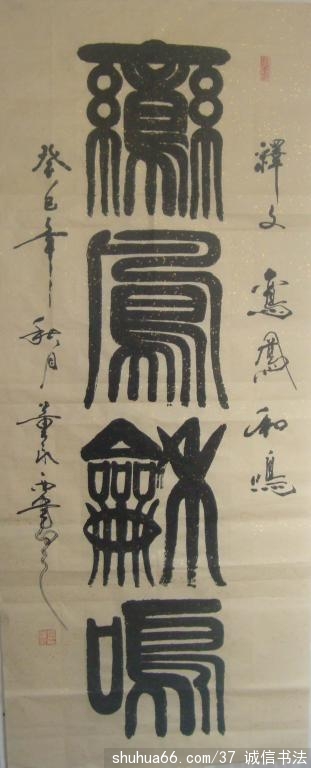 鸞鳳龢鳴
釋文 鸾凤和鸣
癸巳年秋月董
shuhua66.com/37 诚信书法